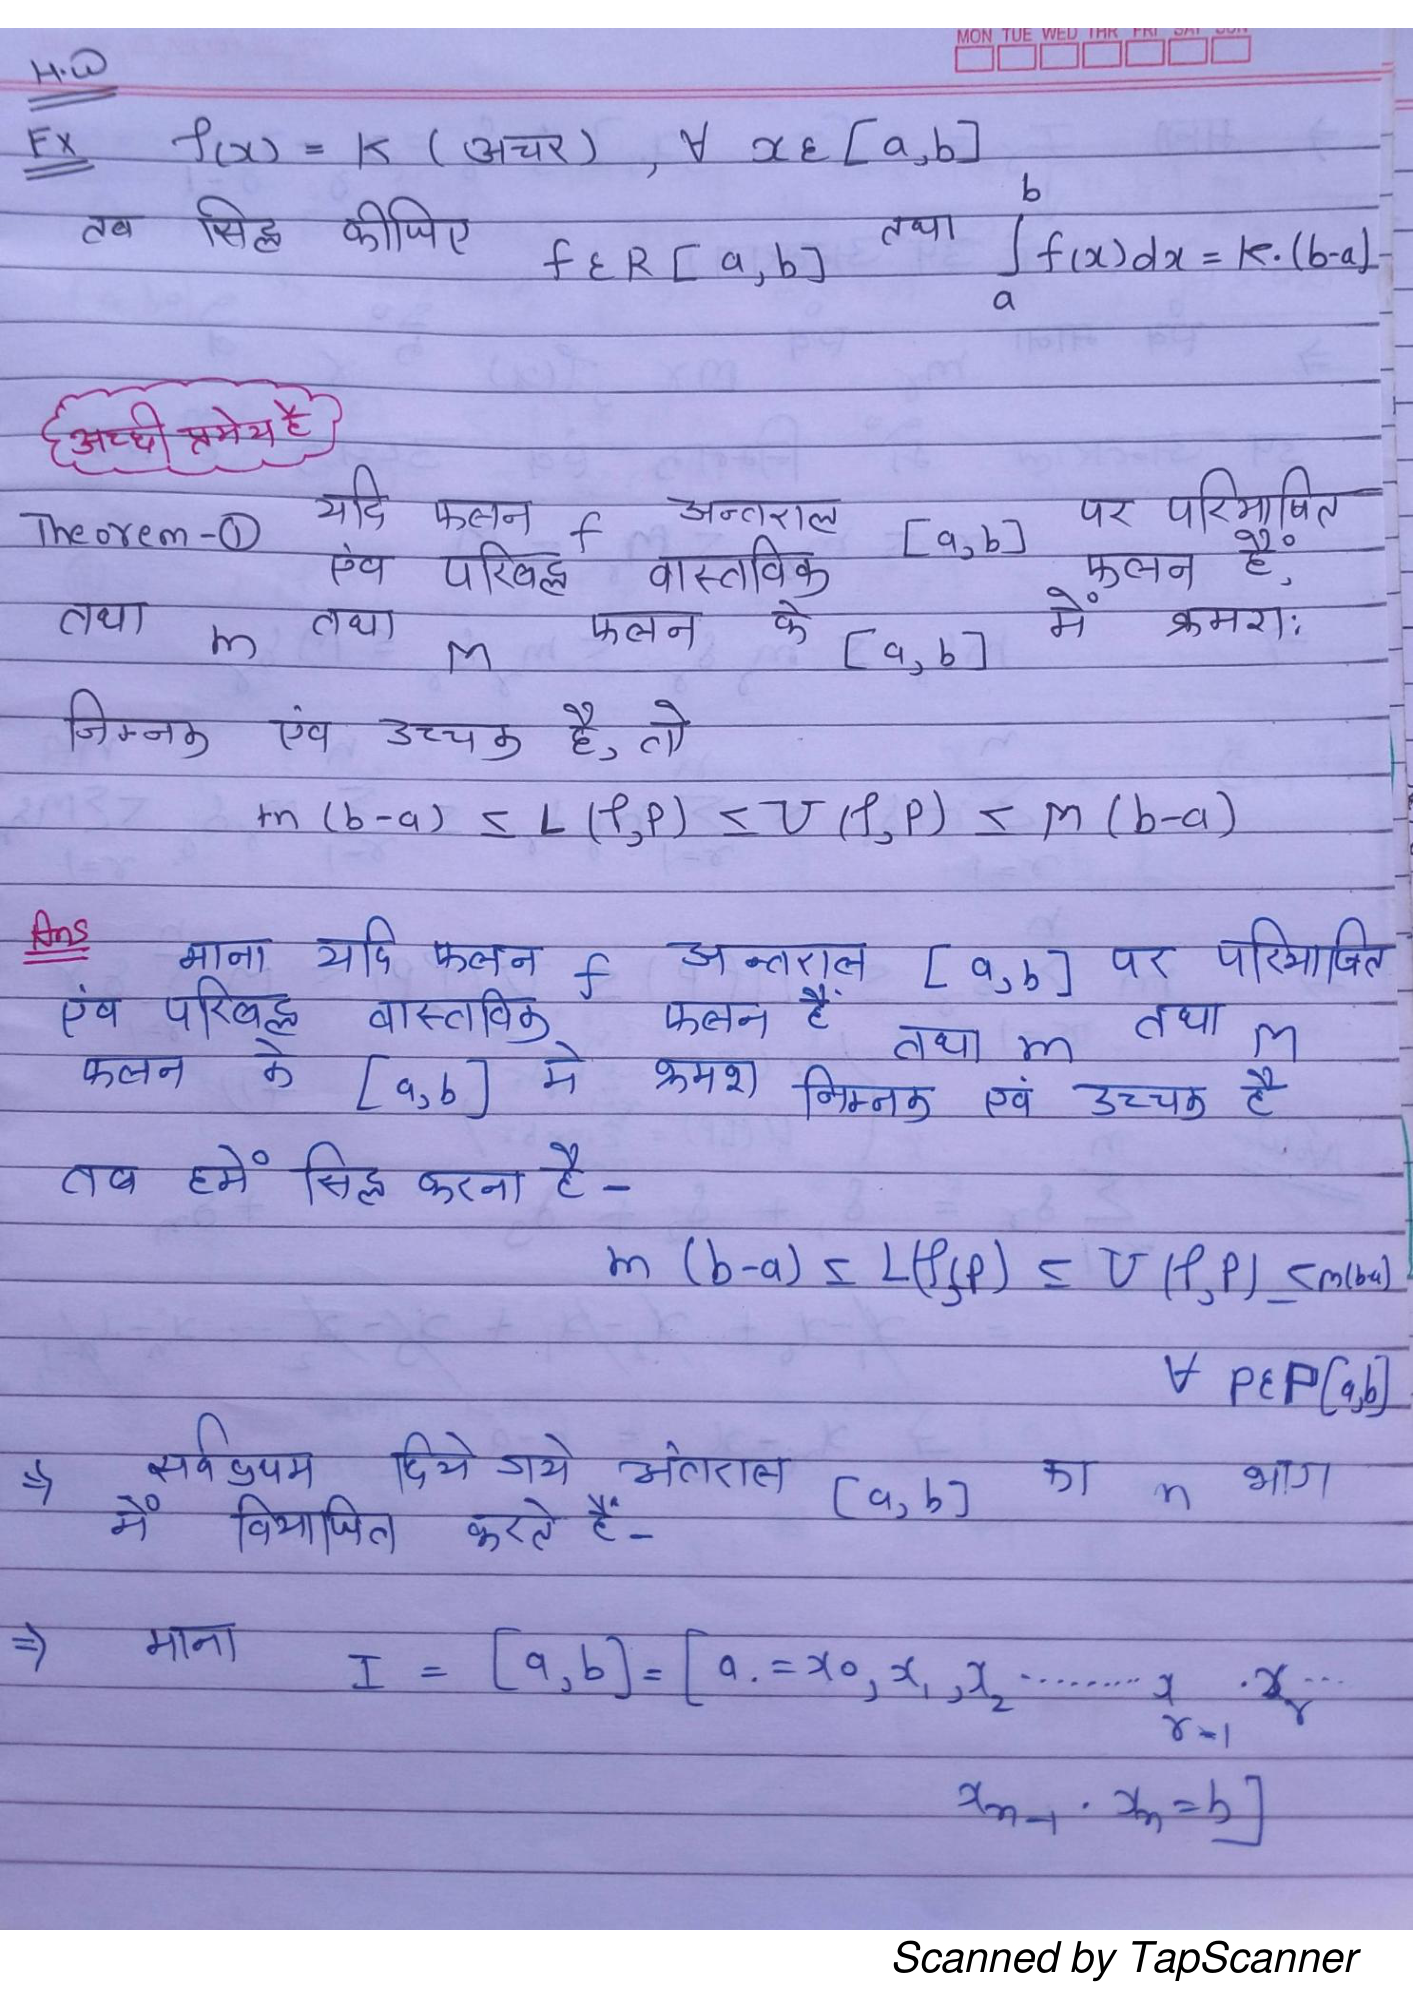 MON TUE WED THR FRI SAT SUN
H.W
Ex f(x) = K (अचर), ∀ x ε [a,b]
तब सिद्ध कीजिए f ε R [a,b] तथा ∫ₐᵇ f(x)dx = K.(b-a)
अच्छी प्रमेय है
Theorem-① यदि फलन f अन्तराल [a,b] पर परिभाषित
एंव परिबद्ध वास्तविक फलन हैं,
तथा m तथा M फलन के [a,b] में क्रमश:
निम्नक एंव उच्चक है, तो
m (b-a) ≤ L (f,P) ≤ U (f,P) ≤ M (b-a)
Ans माना यदि फलन f अन्तराल [a,b] पर परिभाषित
एंव परिबद्ध वास्तविक फलन हैं तथा m तथा M
फलन के [a,b] मे क्रमश निम्नक एवं उच्चक है
तब हमें सिद्ध करना है -
m (b-a) ≤ L(f,P) ≤ U (f,P) ≤ M(b-a)
∀ P ε P[a,b]
⇒ सर्वप्रथम दिये गये अंतराल [a,b] का n भाग
में विभाजित करते हैं-
⇒ माना I = [a,b] = [a.=x₀, x₁, x₂ ......... x_{r-1} . x_r ...
x_{n-1} . x_n = b]
Scanned by TapScanner